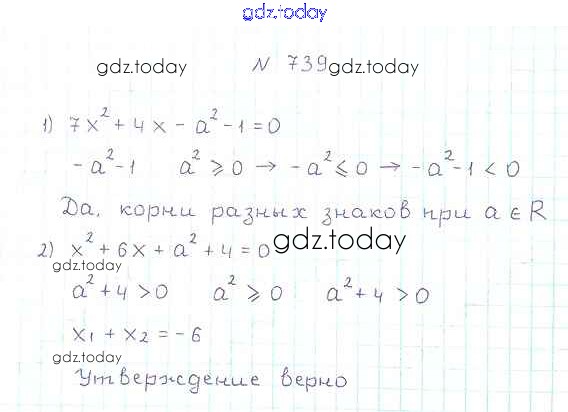 gdz.today
gdz.today N 739 gdz.today
1) 7x² + 4x - a² - 1 = 0
- a² - 1 a² ⩾ 0 → - a² ⩽ 0 → - a² - 1 < 0
Да, корни разных знаков при a ∈ R
2) x² + 6x + a² + 4 = 0 gdz.today
gdz.today
a² + 4 > 0 a² ⩾ 0 a² + 4 > 0
x₁ + x₂ = - 6
gdz.today
Утверждение верно